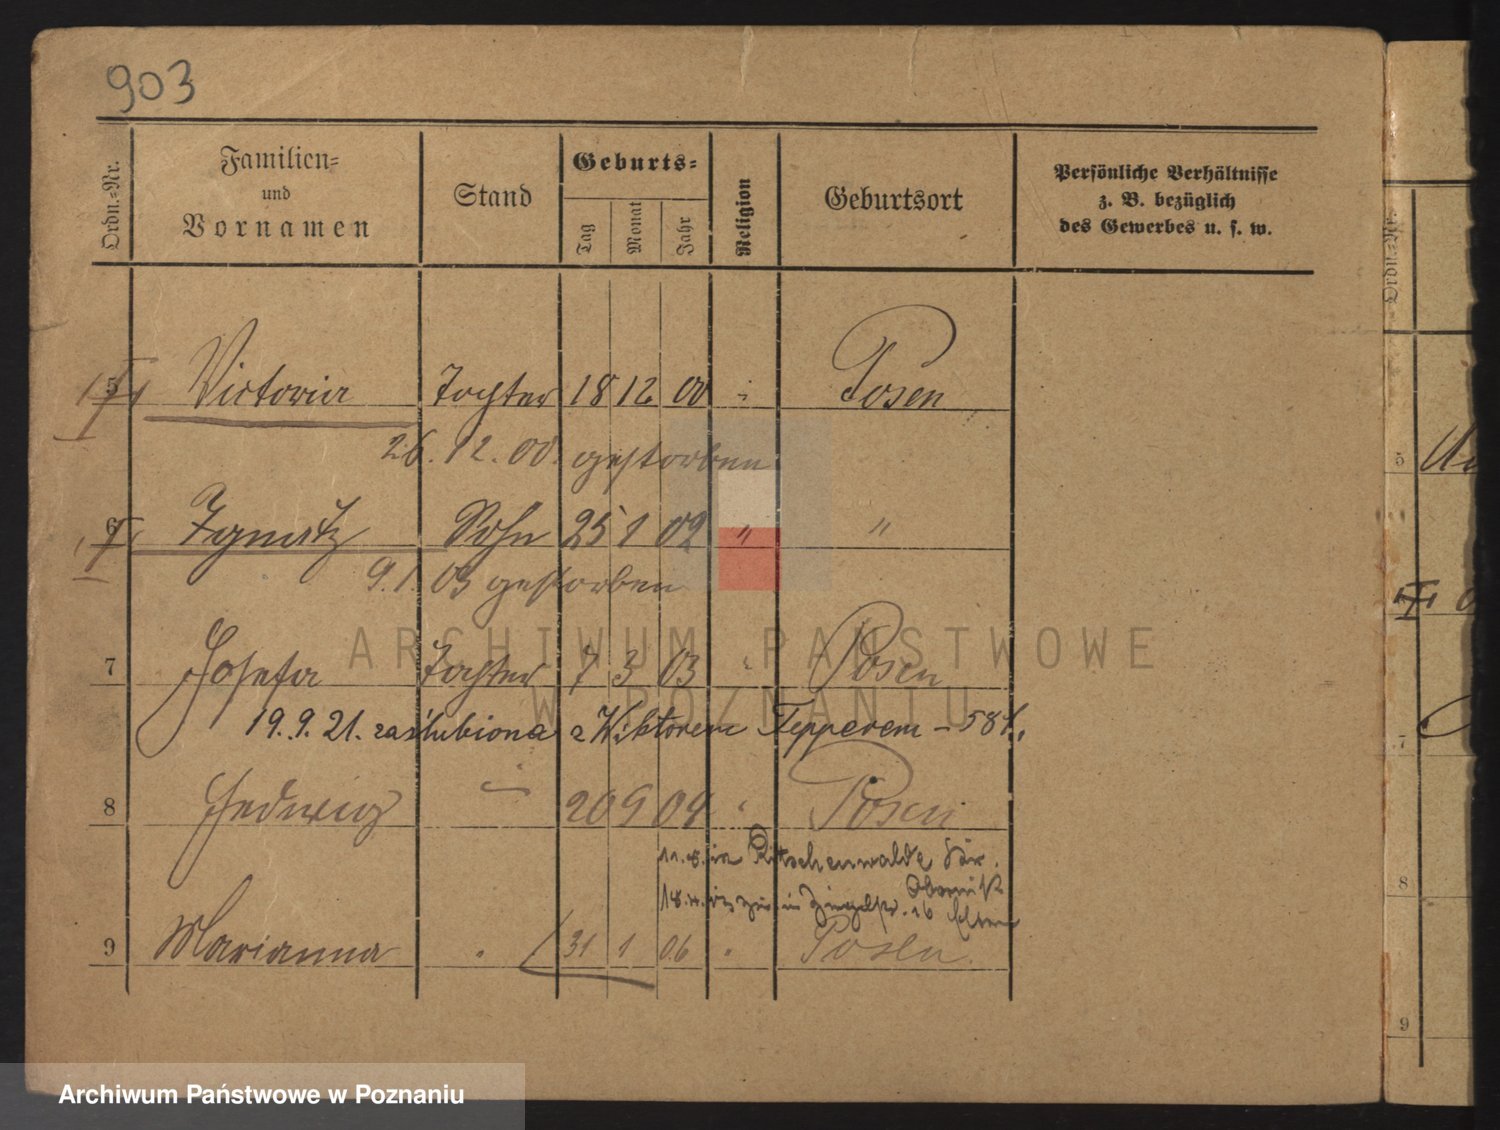 903
Ordn.-Nr.
Familien-
und
Vornamen
Stand
Geburts-
Tag
Monat
Jahr
Religion
Geburtsort
Persönliche Verhältnisse
z. B. bezüglich
des Gewerbes u. s. w.
5 Victoria Tochter 18 12 00 " Posen
26. 12. 00. gestorben
6 Ignatz Sohn 25 1 02 " "
9. 1. 03 gestorben
7 Josefa Tochter 7 3 03 " Posen
19. 9. 21. zaślubiona z Wiktorem Tepperem – 58
8 Hedwig 20 9 04 " Posen
in Ritschenwalde Kr.
Obornik
in 16 Eltern
9 Marianna " 31 1 06 " Posen
Ordn.-Nr.
5
7
8
9
ARCHIWUM PAŃSTWOWE
W POZNANIU
Archiwum Państwowe w Poznaniu